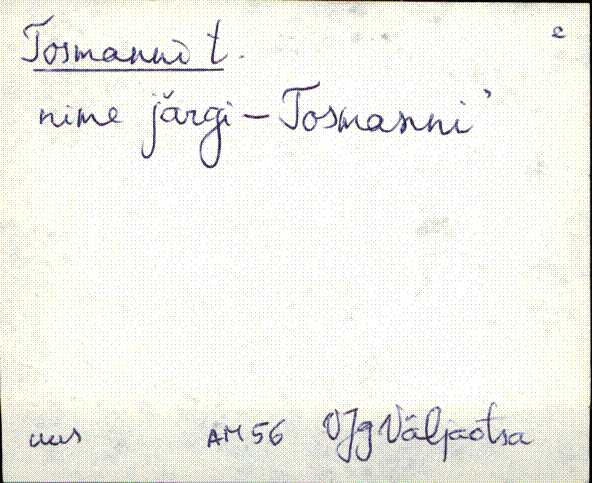 Tosmanni t. e
nime järgi – Tosmanni'
uus AM 56 VJg Väljaotsa